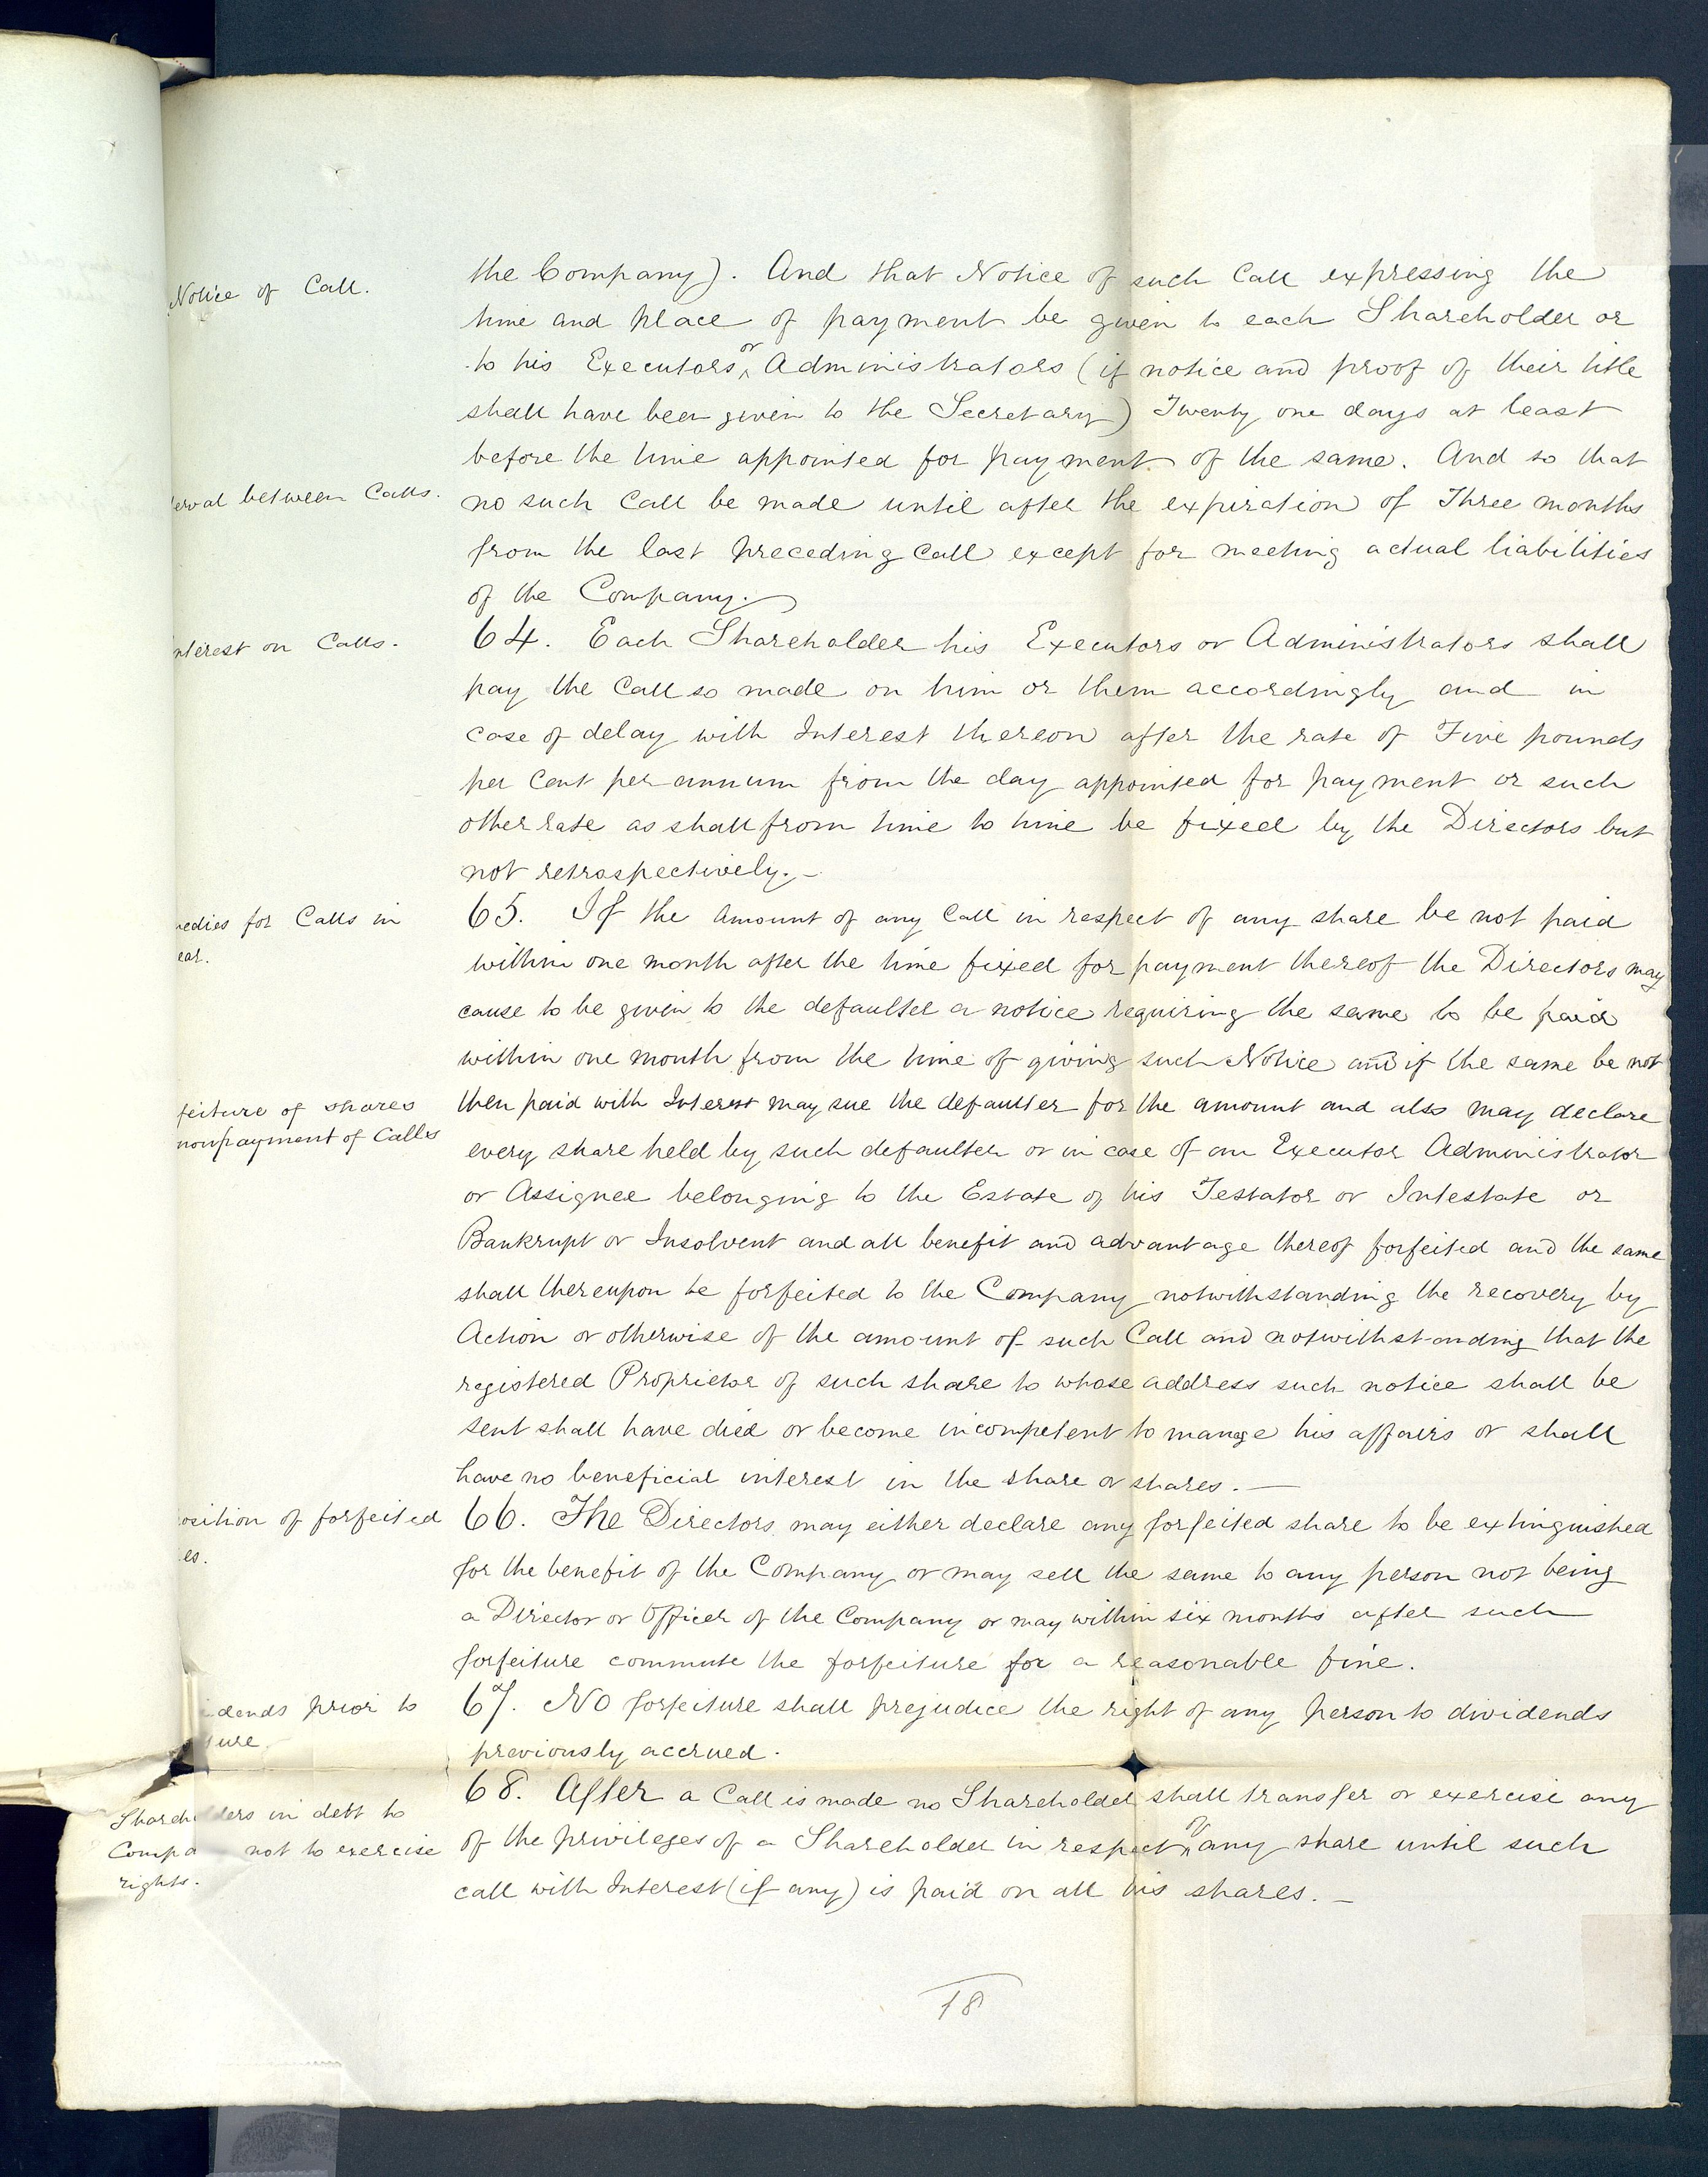 Notice of Call.
the Company). And that Notice of such Call expressing the
time and place of payment be given to each Shareholder or
to his Executors or Administrators (if notice and proof of their title
shall have been given to the Secretary) Twenty one days at least
before the time appointed for payment of the same. And so that
erval between Calls.
no such Call be made until after the expiration of Three months
from the last preceding Call except for meeting actual liabilities
of the Company.
nterest on Calls.
64. Each Shareholder his Executors or Administrators shall
pay the Call so made on him or them accordingly and in
case of delay with Interest thereon after the rate of Five pounds
per Cent per annum from the day appointed for payment or such
other rate as shall from time to time be fixed by the Directors but
not retrospectively. -
edies for Calls in
ear.
65. If the Amount of any Call in respect of any share be not paid
within one month after the time fixed for payment thereof the Directors may
cause to be given to the defaulter a notice requiring the same to be paid
within one month from the time of giving such Notice and if the same be not
feiture of shares
nonpayment of Calls
then paid with Interest may sue the defaulter for the amount and also may declare
every share held by such defaulter or in case of an Executor Administrator
or Assignee belonging to the Estate of his Testator or Intestate or
Bankrupt or Insolvent and all benefit and advantage thereof forfeited and the same
shall thereupon be forfeited to the Company notwithstanding the recovery by
Action or otherwise of the amount of such Call and notwithstanding that the
registered Proprietor of such share to whose address such notice shall be
sent shall have died or become incompetent to manage his affairs or shall
have no beneficial interest in the share or shares. -
osition of forfeited
es.
66. The Directors may either declare any forfeited share to be extinguished
for the benefit of the Company or may sell the same to any person not being
a Director or Officer of the Company or may within six months after such
forfeiture commute the forfeiture for a reasonable fine.
idends prior to
ture
67. No forfeiture shall prejudice the right of any person to dividends
previously accrued.
Shareh ders in debt to
Compa not to exercise
rights.
68. After a Call is made no Shareholder shall transfer or exercise any
of the privileges of a Shareholder in respect of any share until such
call with Interest (if any) is paid on all his shares. -
18